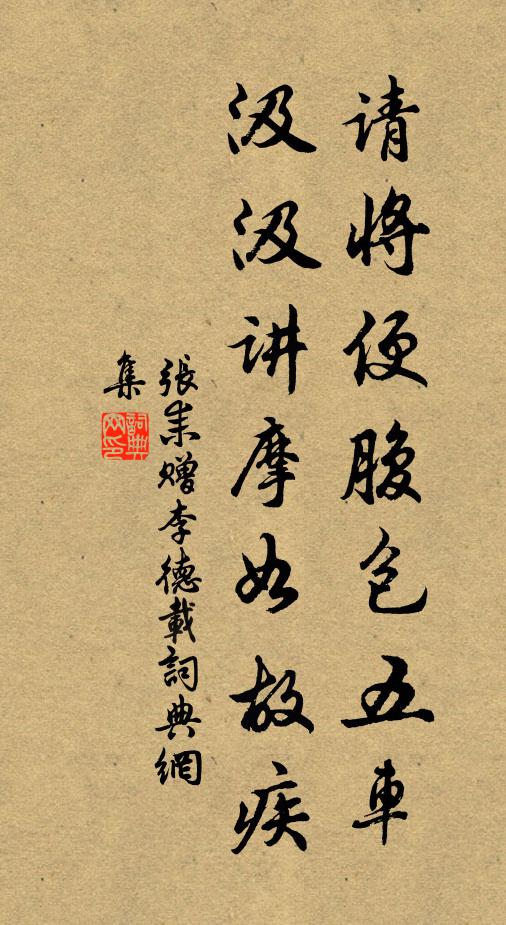 请将便腹包五車
汲汲讲摩如故疾
張耒贈李德載詞典網
集
詞典
网印